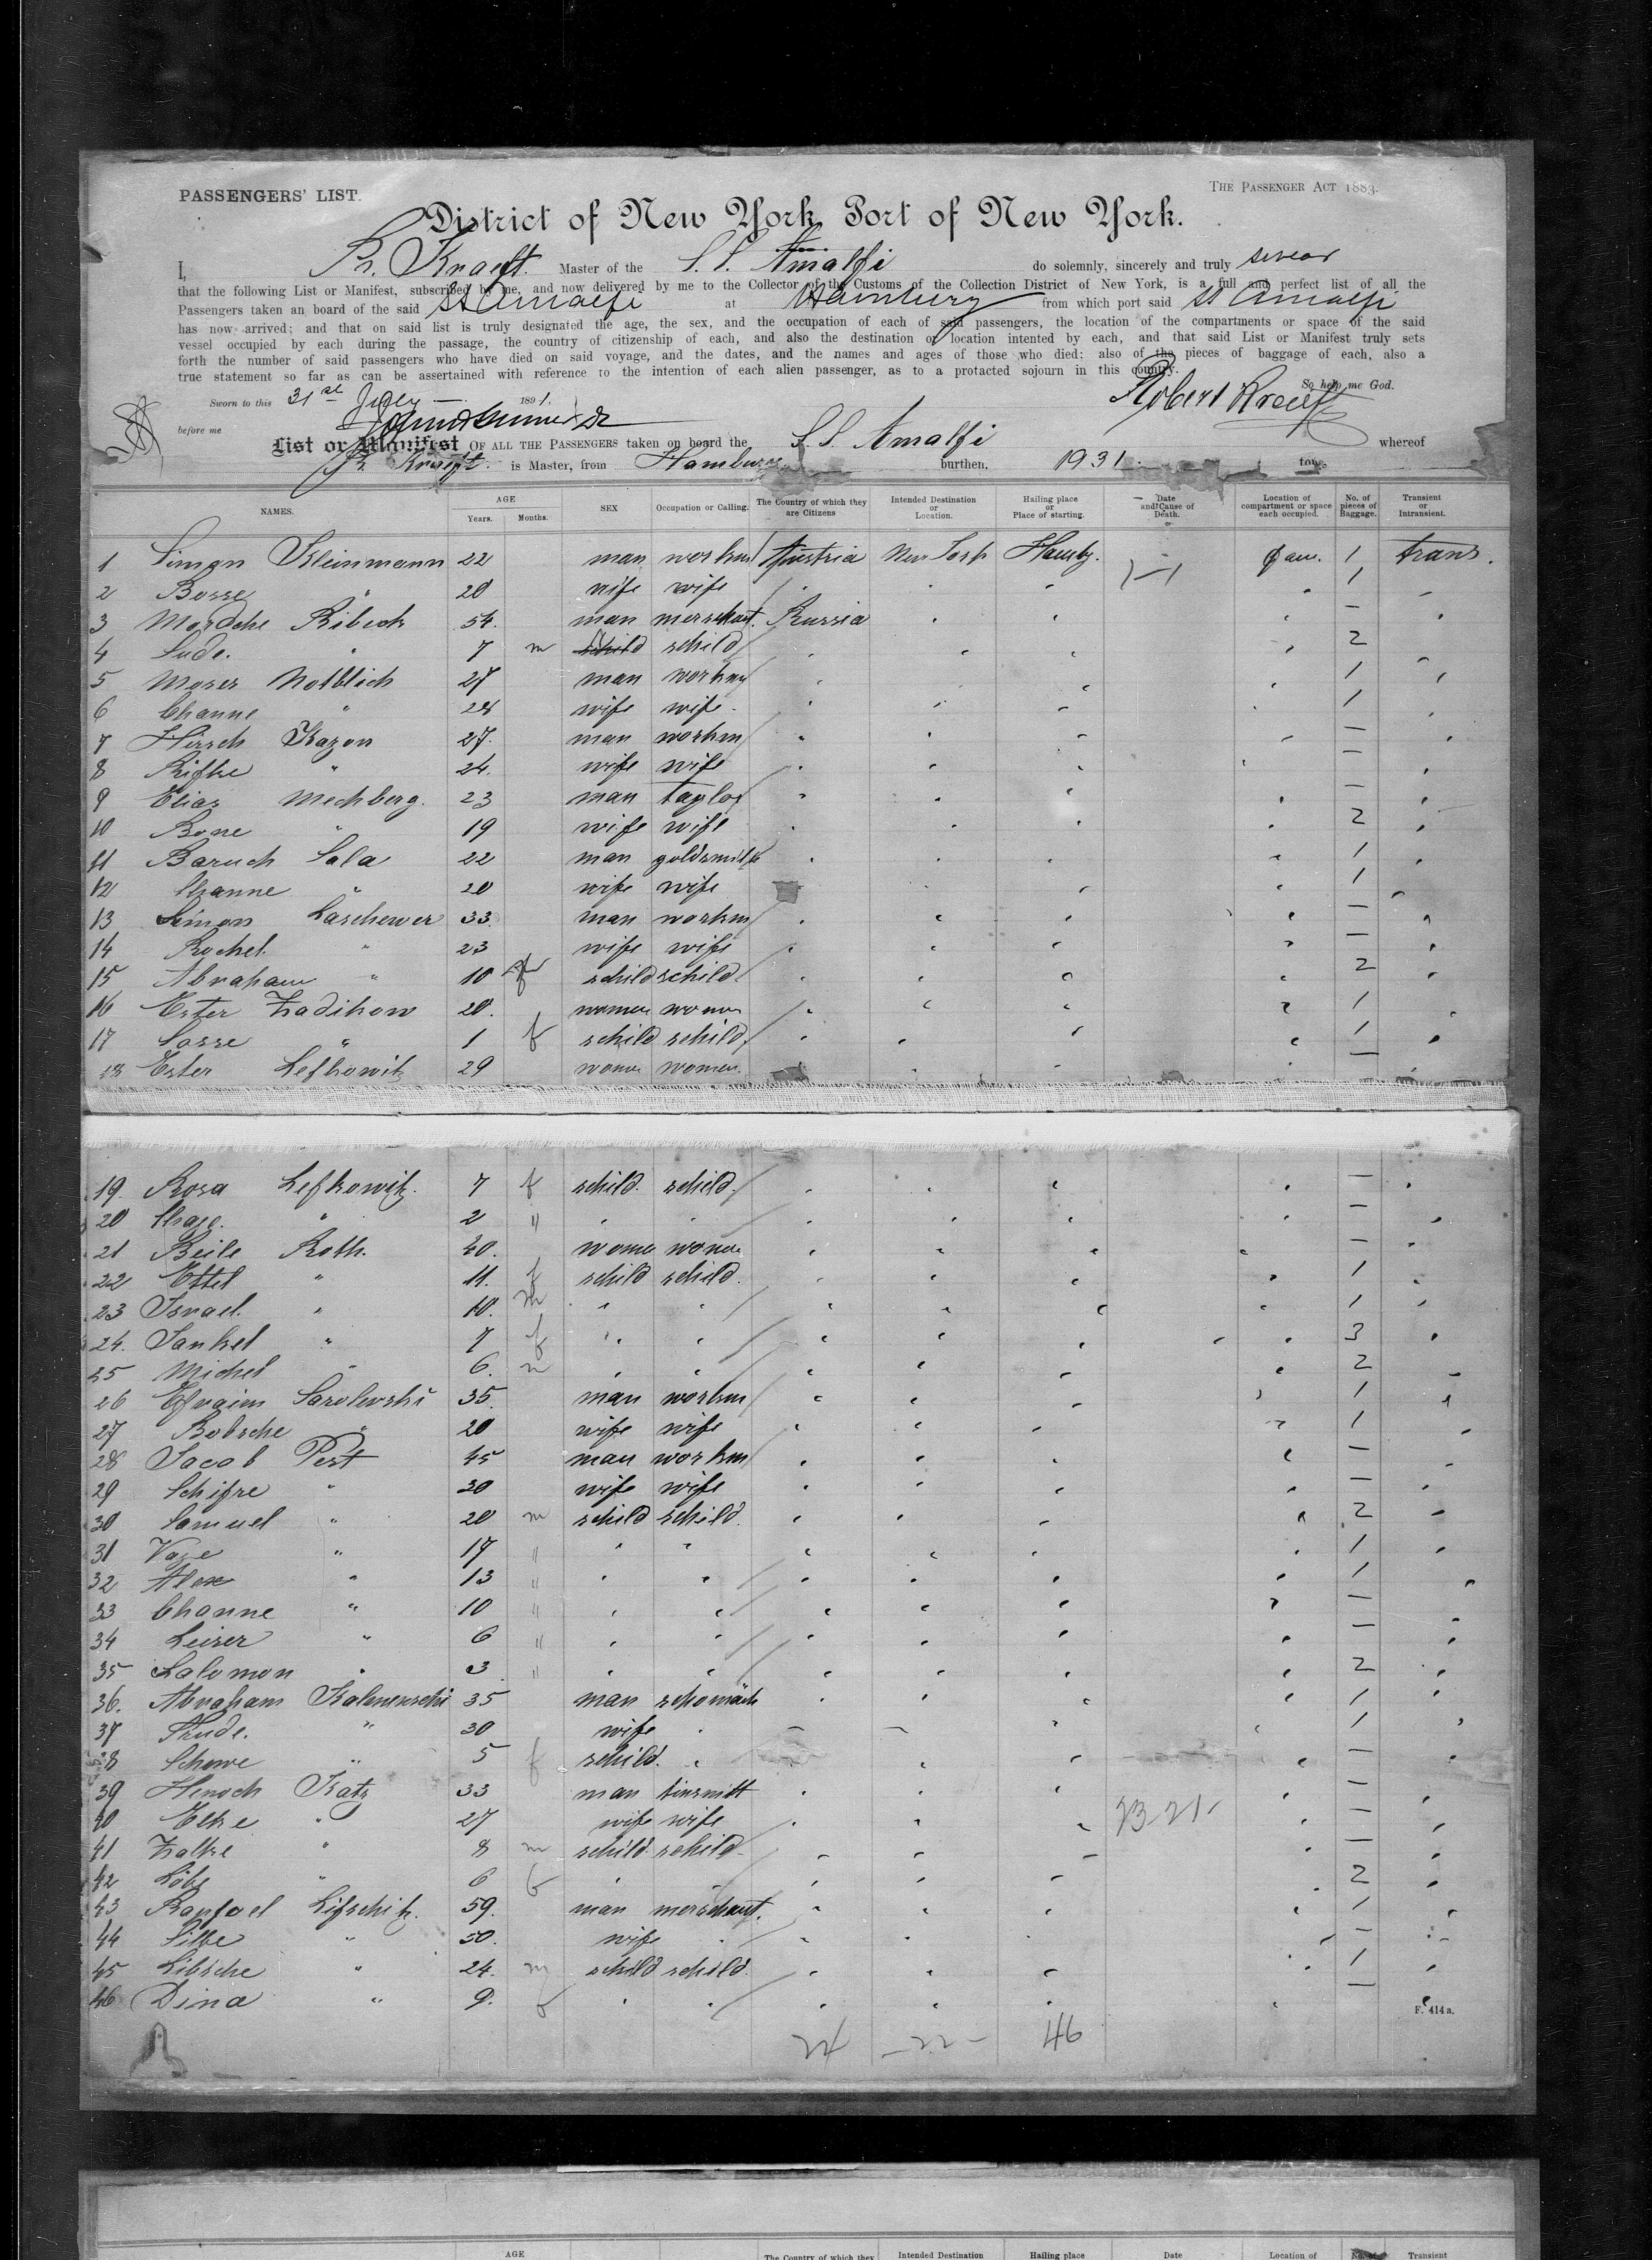 PASSENGERS' LIST.
THE PASSENGER ACT 1883.
District of New York, Port of New York.
I, Kraeft. Master of the S. S. Amalfi do solemnly, sincerely and truly swear
that the following List or Manifest, subscribed by me, and now delivered by me to the Collector of the Customs of the Collection District of New York, is a full and perfect list of all the
Passengers taken on board of the said SS Amalfi at Hamburg from which port said SS Amalfi
has now arrived; and that on said list is truly designated the age, the sex, and the occupation of each of said passengers, the location of the compartments or space of the said
vessel occupied by each during the passage, the country of citizenship of each, and also the destination or location intented by each, and that said List or Manifest truly sets
forth the number of said passengers who have died on said voyage, and the dates, and the names and ages of those who died; also of the pieces of baggage of each, also a
true statement so far as can be assertained with reference to the intention of each alien passenger, as to a protacted sojourn in this country.
So help me God.
Sworn to this 31st July 1891. Robert Kraeft
before me
List or Manifest OF ALL THE PASSENGERS taken on board the S. S. Amalfi whereof
Kraeft. is Master, from Hamburg burthen. 1931. tons.
NAMES. AGE Years. Months. SEX Occupation or Calling. The Country of which they are Citizens Intended Destination or Location. Hailing place or Place of starting. Date and Cause of Death. Location of compartment or space each occupied. No. of pieces of Baggage. Transient or Intransient.
1 Simon Kleinmann 22 man workm Austria New York Hambg. 1 trans.
2 Bosse " 20 wife wife 1
3 Mordche Ribeck 54. man merschant. Russia —
4 Jude. " 7 m schild schild 2
5 Moses Notblich 27 man workm 1
6 Channe " 28 wife wife. 1
7 Hirsch Kazon 27. man workm —
8 Rifke " 24. wife wife —
9 Elias Mechberg. 23 man taylor —
10 Rone " 19 wife wife 2
11 Baruch Sala 22 man goldsmith 1
12 Channe " 20 wife wife 1
13 Simon Laschewer 33. man workm —
14 Rochel. " 23 wife wife —
15 Abraham " 10 schild schild. 2
16 Ester Zadikow 20. women women 1
17 Sosse " 1 f schild schild. 1
18 Ester Lefkowitz 29 women women. —
19. Rosa Lefkowitz. 7 f schild. schild. —
20 " 2 " —
21 Beile Roth. 40. women women —
22 Ettel " 11. f schild schild. 1
23 Israel. " 10. m 1
24. Jankel " 7 f 3
25 Michel " 6. m 2
26 Efraim Sarolewski 35. man workm 1
27 Bobsche " 20 wife wife 1
28 Jacob Pest 45 man workm —
29 Schifre " 30 wife wife —
30 Samuel " 20 m schild schild. 2
31 " 17 " 1
32 Alex " 13 " 1
33 Channe " 10 " —
34 Leiser " 6 " —
35 Salomon " 3 " 2
36. Abraham Kalmenschi 35 man schomäch 1
37 " 30 wife 1
38 Schowe " 5 f schild. —
39 Henoch Katz 33 man tinsmitt —
40 Elke " 27 wife wife —
41 Zalke " 8 m schild schild —
42 Löbe " 6 f 2
43 Ranfael Lifschitz. 59. man merschant. 1
44 Silke " 50. wife —
45 Libsche " 24. m schild schild. 1
46 Dina " 9. f —
F. 414 a.
24 — 22 — 46
AGE The Country of which they Intended Destination Hailing place Date Location of No. of Transient